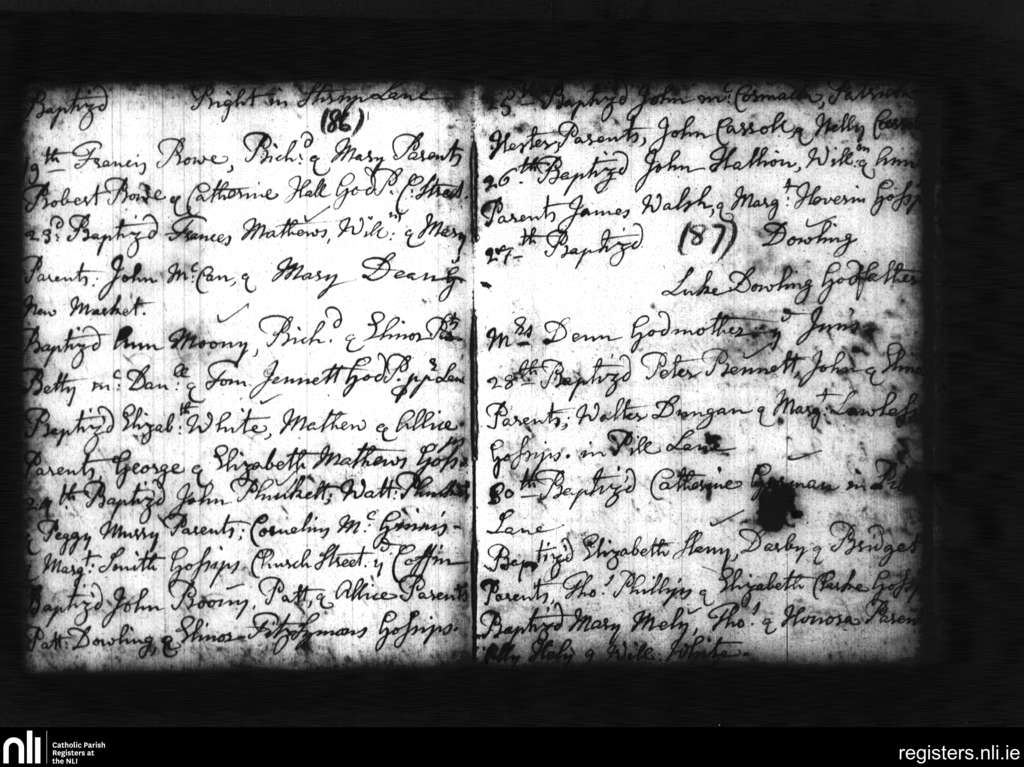 Baptiz'd in Stirrup Lane
(86)
19th Francis Rowe, Rich.d & Mary Parents
Robert Rowe & Catherine Hall God P. C. Street.
23d Baptiz'd Frances Mathews, Will.m & Mary
Parents. John McCan, & Mary Dean
New Market.
Baptiz'd Ann Moony, Rich.d & Elinor
Betty & Tom Jennett God P. Lane
Baptiz'd Elizab.th White, Mathew & Allice
Parents George & Elizabeth Mathews Goss.
24th Baptiz'd John Plunkett, Watt. Plunkett
& Peggy Murry Parents; Cornelius Mc
Marg.t Smith Gossips Church Street. yd Coffin
Baptiz'd John Roony, Patt, & Allice Parents
Patt: Dowling, & Elinor FitzSymons Gossips.
Baptiz'd John McCormack,
Parents, John Carroll & Nelly
26.th Baptiz'd John Hallion, Will.m & Ann
Parents James Walsh, & Marg.t Heverin Goss
27th Baptiz'd (87) Dowling
Luke Dowling Godfather
Mrs Denn Godmother
28th Baptiz'd Peter Bennett, John &
Parents; Walter Dungan & Marg.t Lawless
Gossips. in Pill Lane
30th Baptiz'd Catherine in
Lane
Baptiz'd Elizabeth Heny, Darby & Bridget
Parents, Tho.s Phillips & Elizabeth Goss
Baptiz'd Mary Mely, Tho.s & Honora Paren
Haly & Will. White.
nli
Catholic Parish
Registers at
the NLI
registers.nli.ie